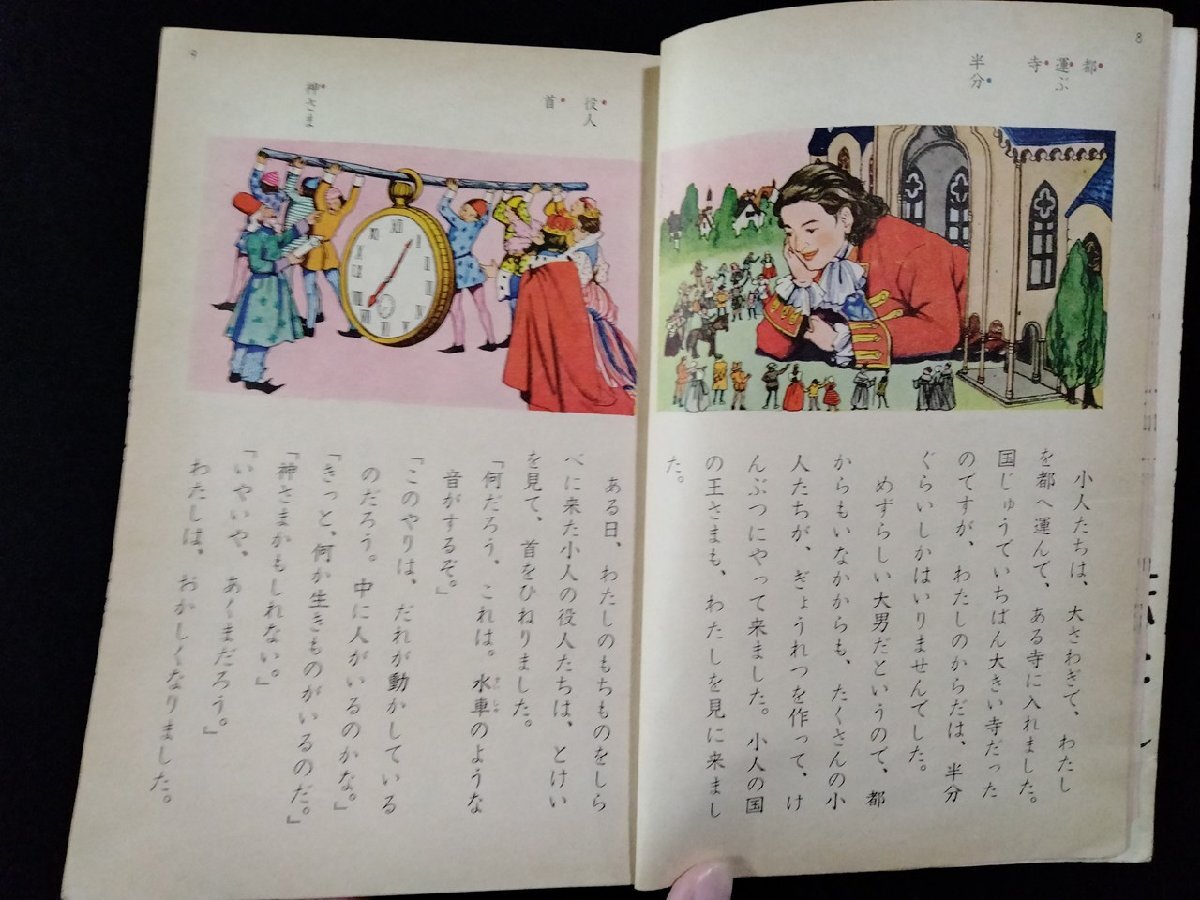 8
都
運ぶ
寺
半分
小人たちは、大さわぎで、わたし
を都へ運んで、ある寺に入れました。
国じゅうでいちばん大きい寺だった
のですが、わたしのからだは、半分
ぐらいしかはいりませんでした。
めずらしい大男だというので、都
からもいなかからも、たくさんの小
人たちが、ぎょうれつを作って、け
んぶつにやって来ました。小人の国
の王さまも、わたしを見に来まし
た。
役人
首
神さま
ある日、わたしのもちものをしら
べに来た小人の役人たちは、とけい
を見て、首をひねりました。
「何だろう、これは。水車のような
音がするぞ。」
「このやりは、だれが動かしている
のだろう。中に人がいるのかな。」
「きっと、何か生きものがいるのだ。」
「神さまかもしれない。」
「いやいや、あくまだろう。」
わたしは、おかしくなりました。